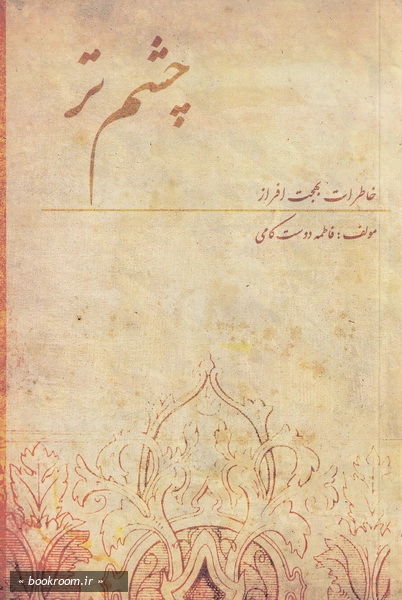 چشم تر
خاطرات بهجت افراز
مولف: فاطمه دوست کامی
« bookroom.ir »